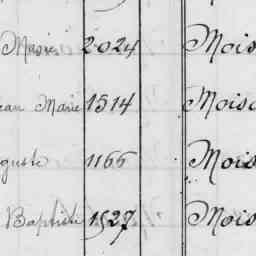 Marie 2024 Mois
ean Marie 1514 Mois
guste 1166 Mois
Baptiste 1527 Mois